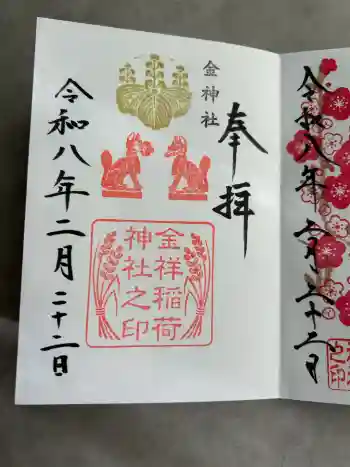 令和八年二月二十二日
之印
奉拝
金神社
金祥稲荷
神社之印
令和八年二月二十二日